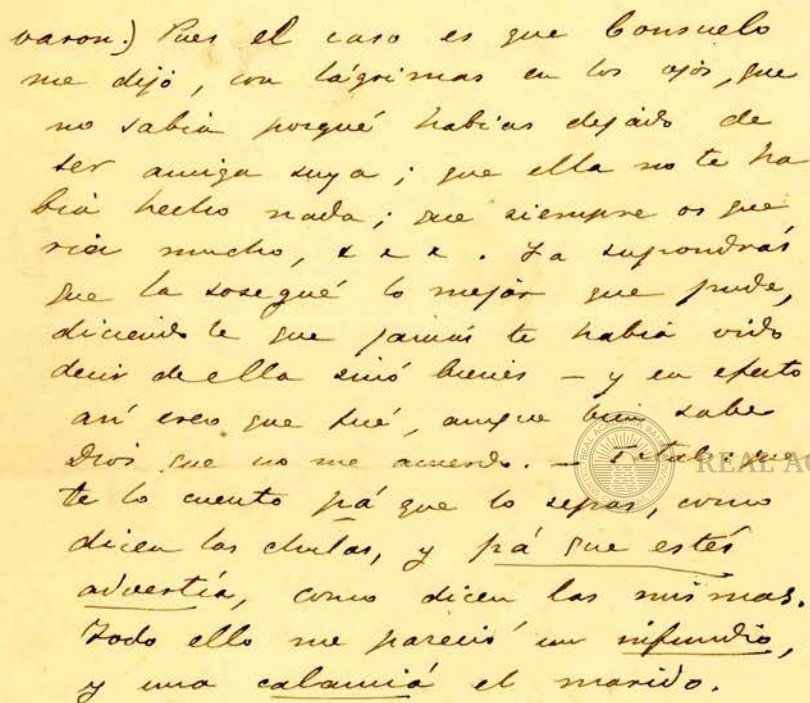 varon.) Pues el caso es que Consuelo
me dijó, con lágrimas en los ojos, que
no sabia porqué habias dejado de
ser amiga suya; que ella no te ha
bia hecho nada; que siempre os que
ria mucho, x x x. Ya supondrás
que la sosegué lo mejor que pude,
diciendole que jamás te habia oido
decir de ella sinó bienes — y en efecto
así creo que fué, aunque bien sabe
Dios que no me acuerdo. — Total: que
te lo cuento pá que lo sepas, como
dicen las chulas, y pá que estés
advertía, como dicen las mismas.
Todo ello me pareció un infundio,
y una calamiá el marido.
REAL AC